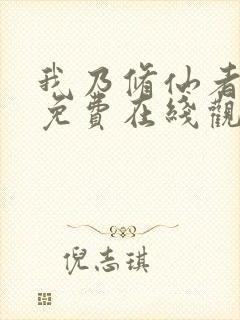 我乃脩仙者
免費在綫觀
倪志琪